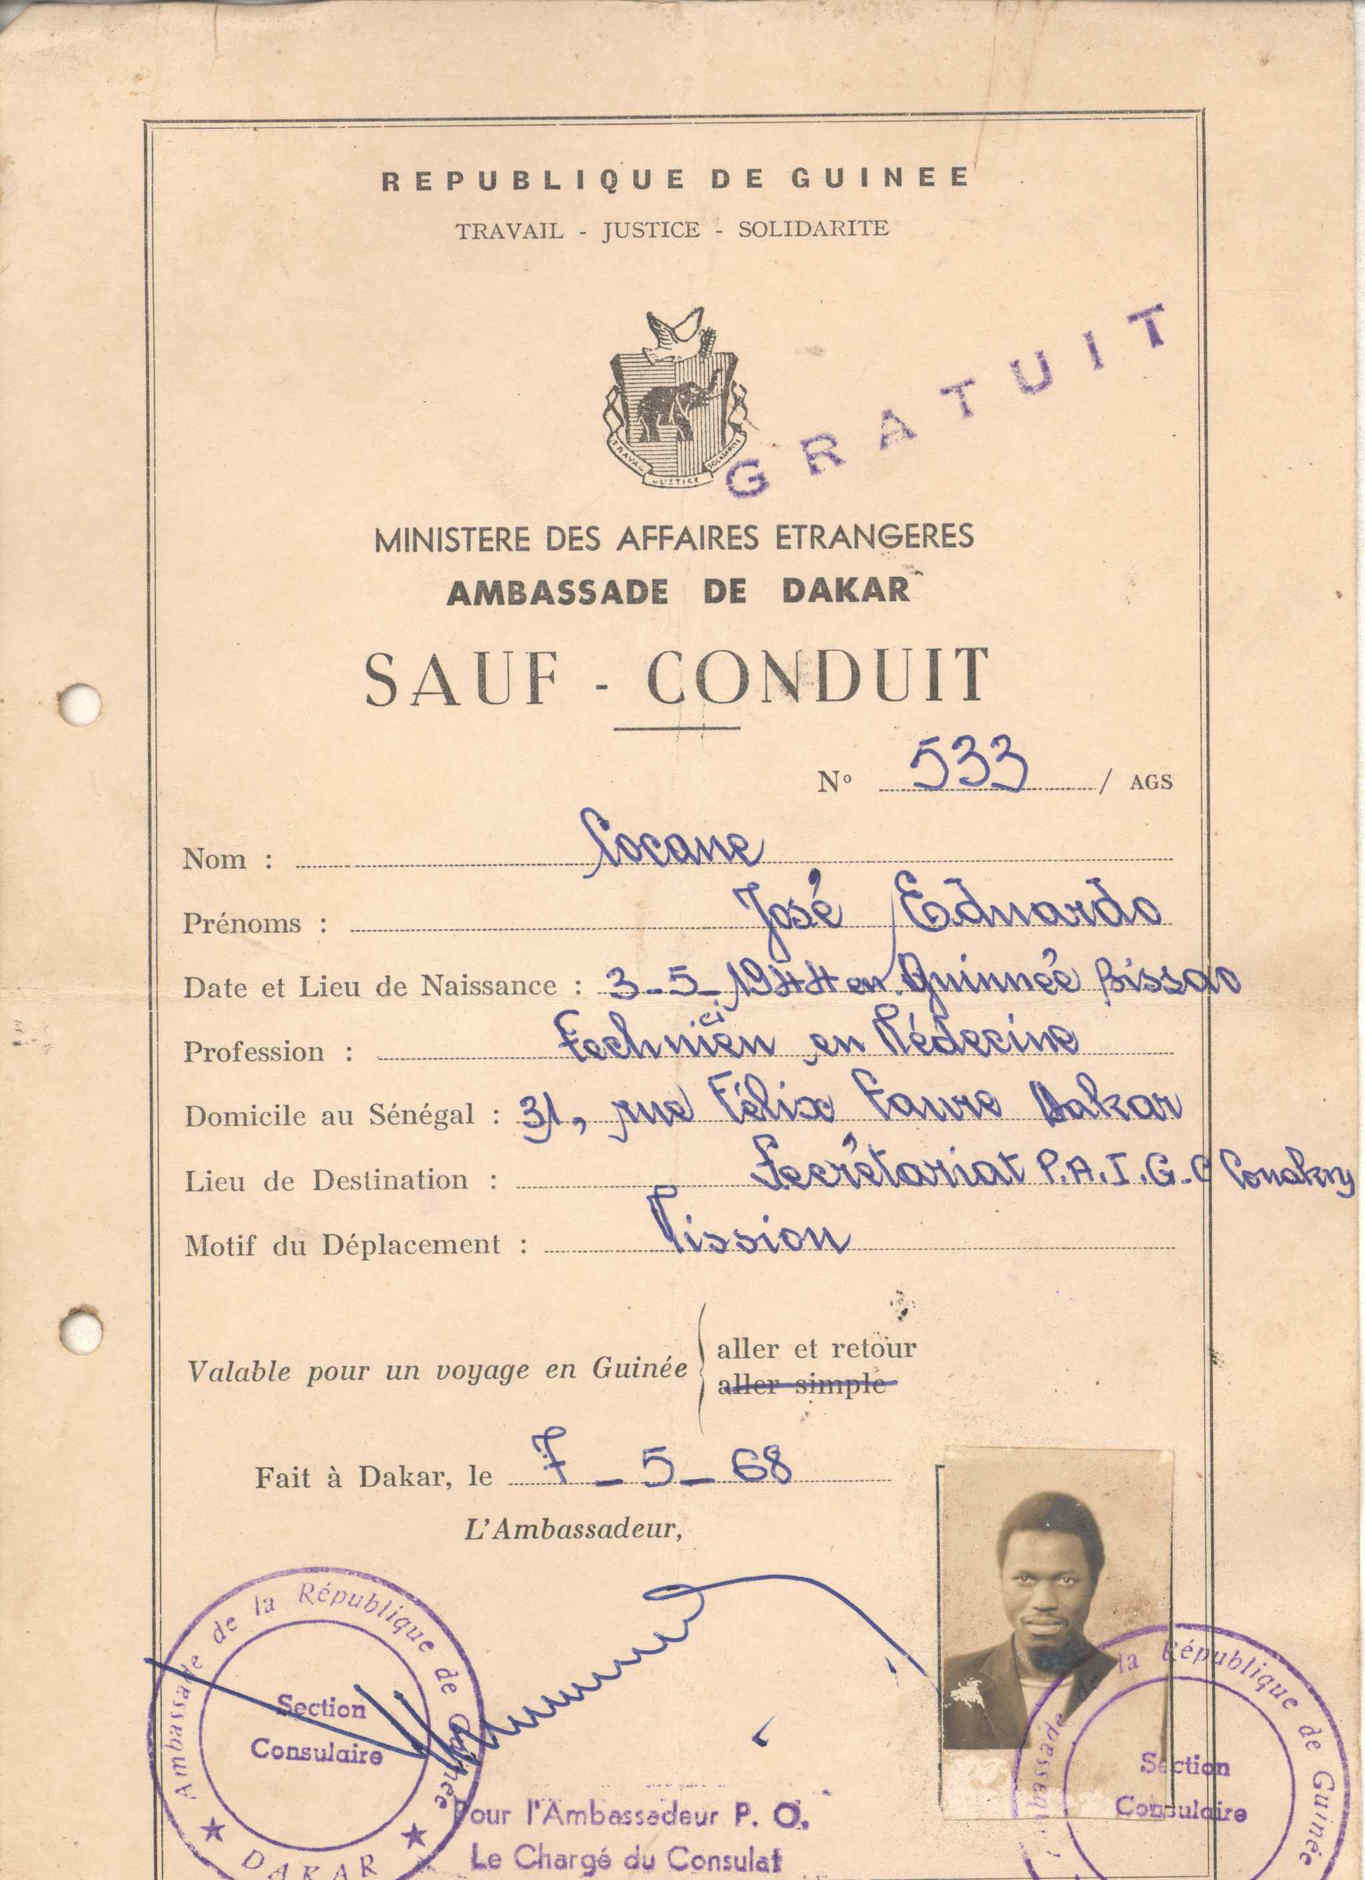 REPUBLIQUE DE GUINEE
TRAVAIL - JUSTICE - SOLIDARITE
TRAVAIL JUSTICE SOLIDARITE
GRATUIT
MINISTERE DES AFFAIRES ETRANGERES
AMBASSADE DE DAKAR
SAUF - CONDUIT
N° 533 / AGS
Nom : Cocane
Prénoms : José Eduardo
Date et Lieu de Naissance : 3-5-1944 en Guinnée Bissao
Profession : Technicien en Médecine
Domicile au Sénégal : 31, rue Félix Faure Dakar
Lieu de Destination : Secrétariat P.A.I.G.C Conakry
Motif du Déplacement : Mission
Valable pour un voyage en Guinée
aller et retour
aller simple
Fait à Dakar, le 7-5-68
L'Ambassadeur,
Ambassade de la République de Guinée
Section
Consulaire
DAKAR
Pour l'Ambassadeur P. O.
Le Chargé du Consulat
Ambassade la République de Guinée
Section
Consulaire